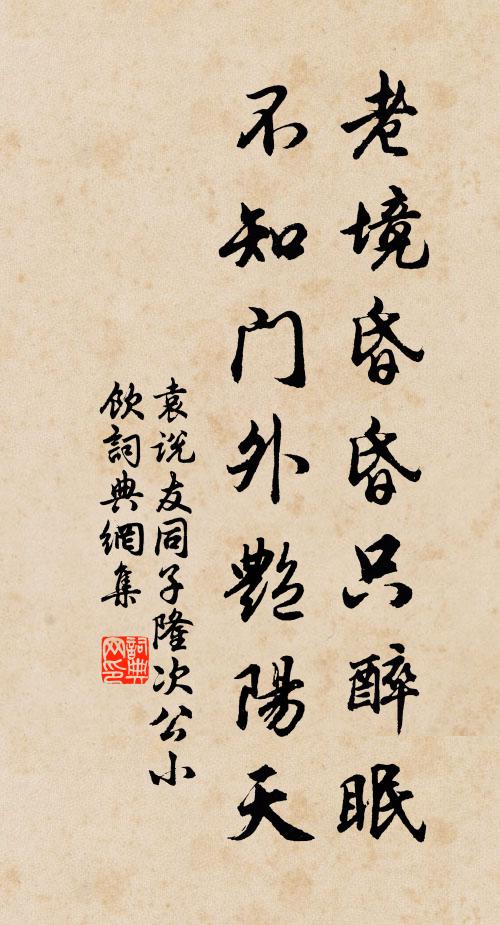 老境昏昏只醉眠
不知门外艷陽天
袁说友同子隆次公小
饮詞典網集
詞典网印